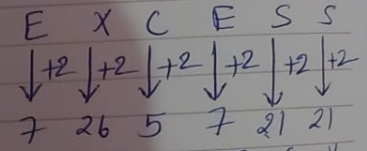 E X C E S S
+2 +2 +2 +2 +2 +2
7 26 5 7 21 21